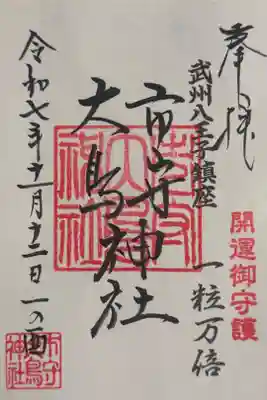 奉拝
開運御守護
武州八王子鎮座
一粒万倍
市守
大鳥神社
市守大鳥神社
令和七年十一月十二日 一の酉
市守大鳥神社